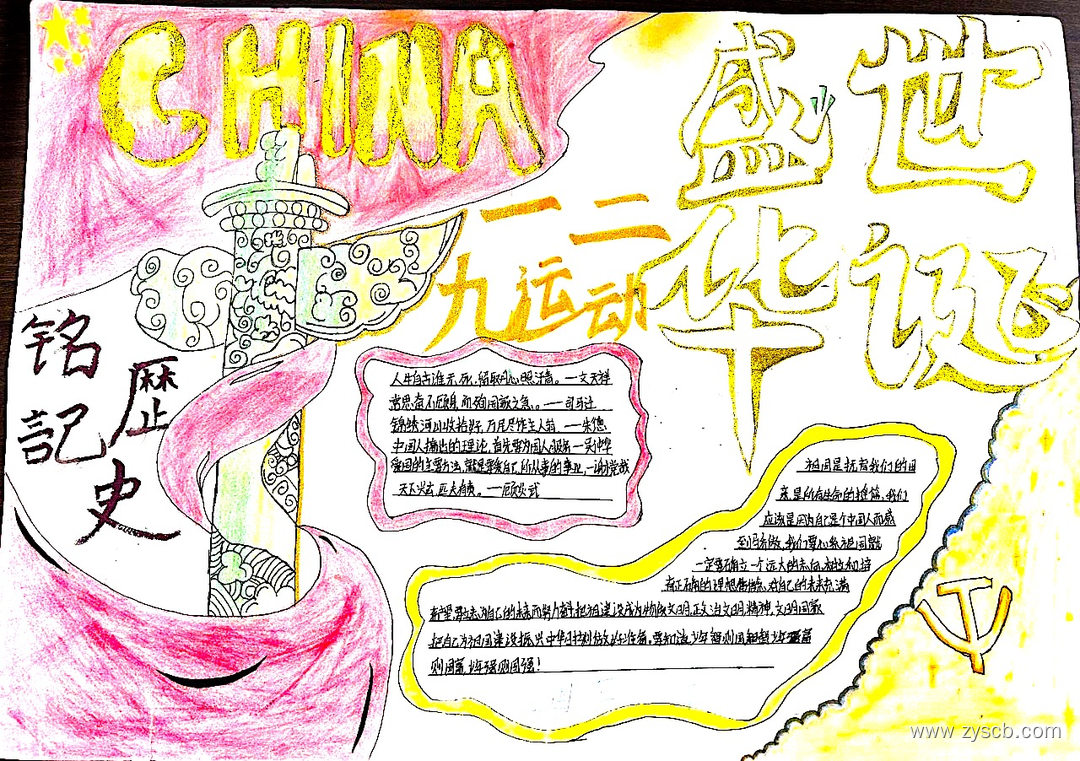 CHINA
盛世
华诞
一二
九运动
铭
記
歷
史
人生自古谁无死,留取丹心照汗青。—文天祥
常思奋不顾身,而殉国家之急。—司马迁
锦绣河山收拾好,万民尽作主人翁 —朱德
中国人 的理论,首先要为国人服务—吴仲华
爱国的主要方法,就是要爱自己所从事的事业,—谢觉哉
天下兴亡,匹夫有责。—顾炎武
祖国是抚育我们的
亲,是所有生命的 ,我们
应该是因为自己是个中国人而感
到骄傲,我们要 祖国就
一定要确立一个远大的志向,树立和培
育正确的理想信念,对自己的未来充满
希望,要 自己的 而努力 把祖国建设成为物质文明,政治文明,精神文明国家
把自己为祖国建设振兴中华时刻做好准备,要知道,少年智则国智,少年富
则国富,少年强则国强!
www.zyscb.com